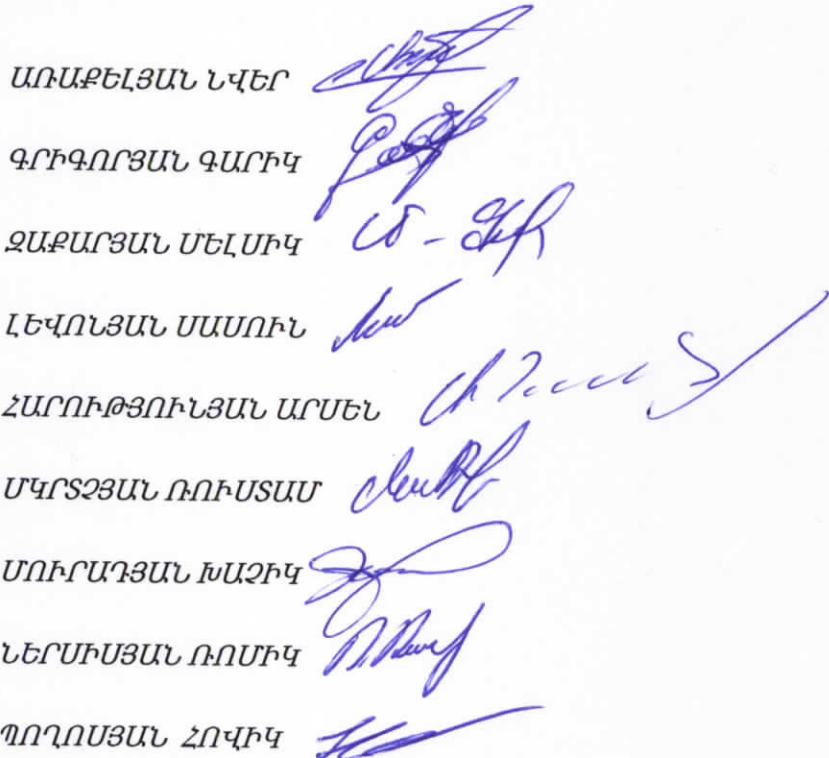 ԱՌԱՔԵԼՅԱՆ ՆՎԵՐ
ԳՐԻԳՈՐՅԱՆ ԳԱՐԻԿ
ԶԱՔԱՐՅԱՆ ՄԵԼՍԻԿ
ԼԵՎՈՆՅԱՆ ՍԱՍՈՒՆ
ՀԱՐՈՒԹՅՈՒՆՅԱՆ ԱՐՍԵՆ
ՄԿՐՏՉՅԱՆ ՌՈՒՍՏԱՄ
ՄՈՒՐԱԴՅԱՆ ԽԱՉԻԿ
ՆԵՐՍԻՍՅԱՆ ՌՈՄԻԿ
ՊՈՂՈՍՅԱՆ ՀՈՎԻԿ